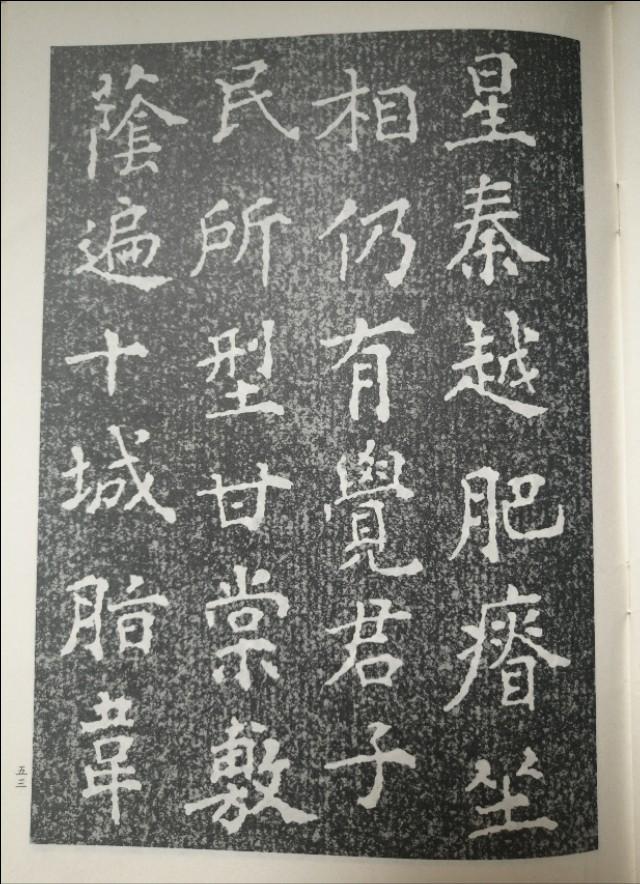 星秦越肥瘠坐
相仍有覺君子
民所型甘棠敷
蔭遍十城脂韋
五三